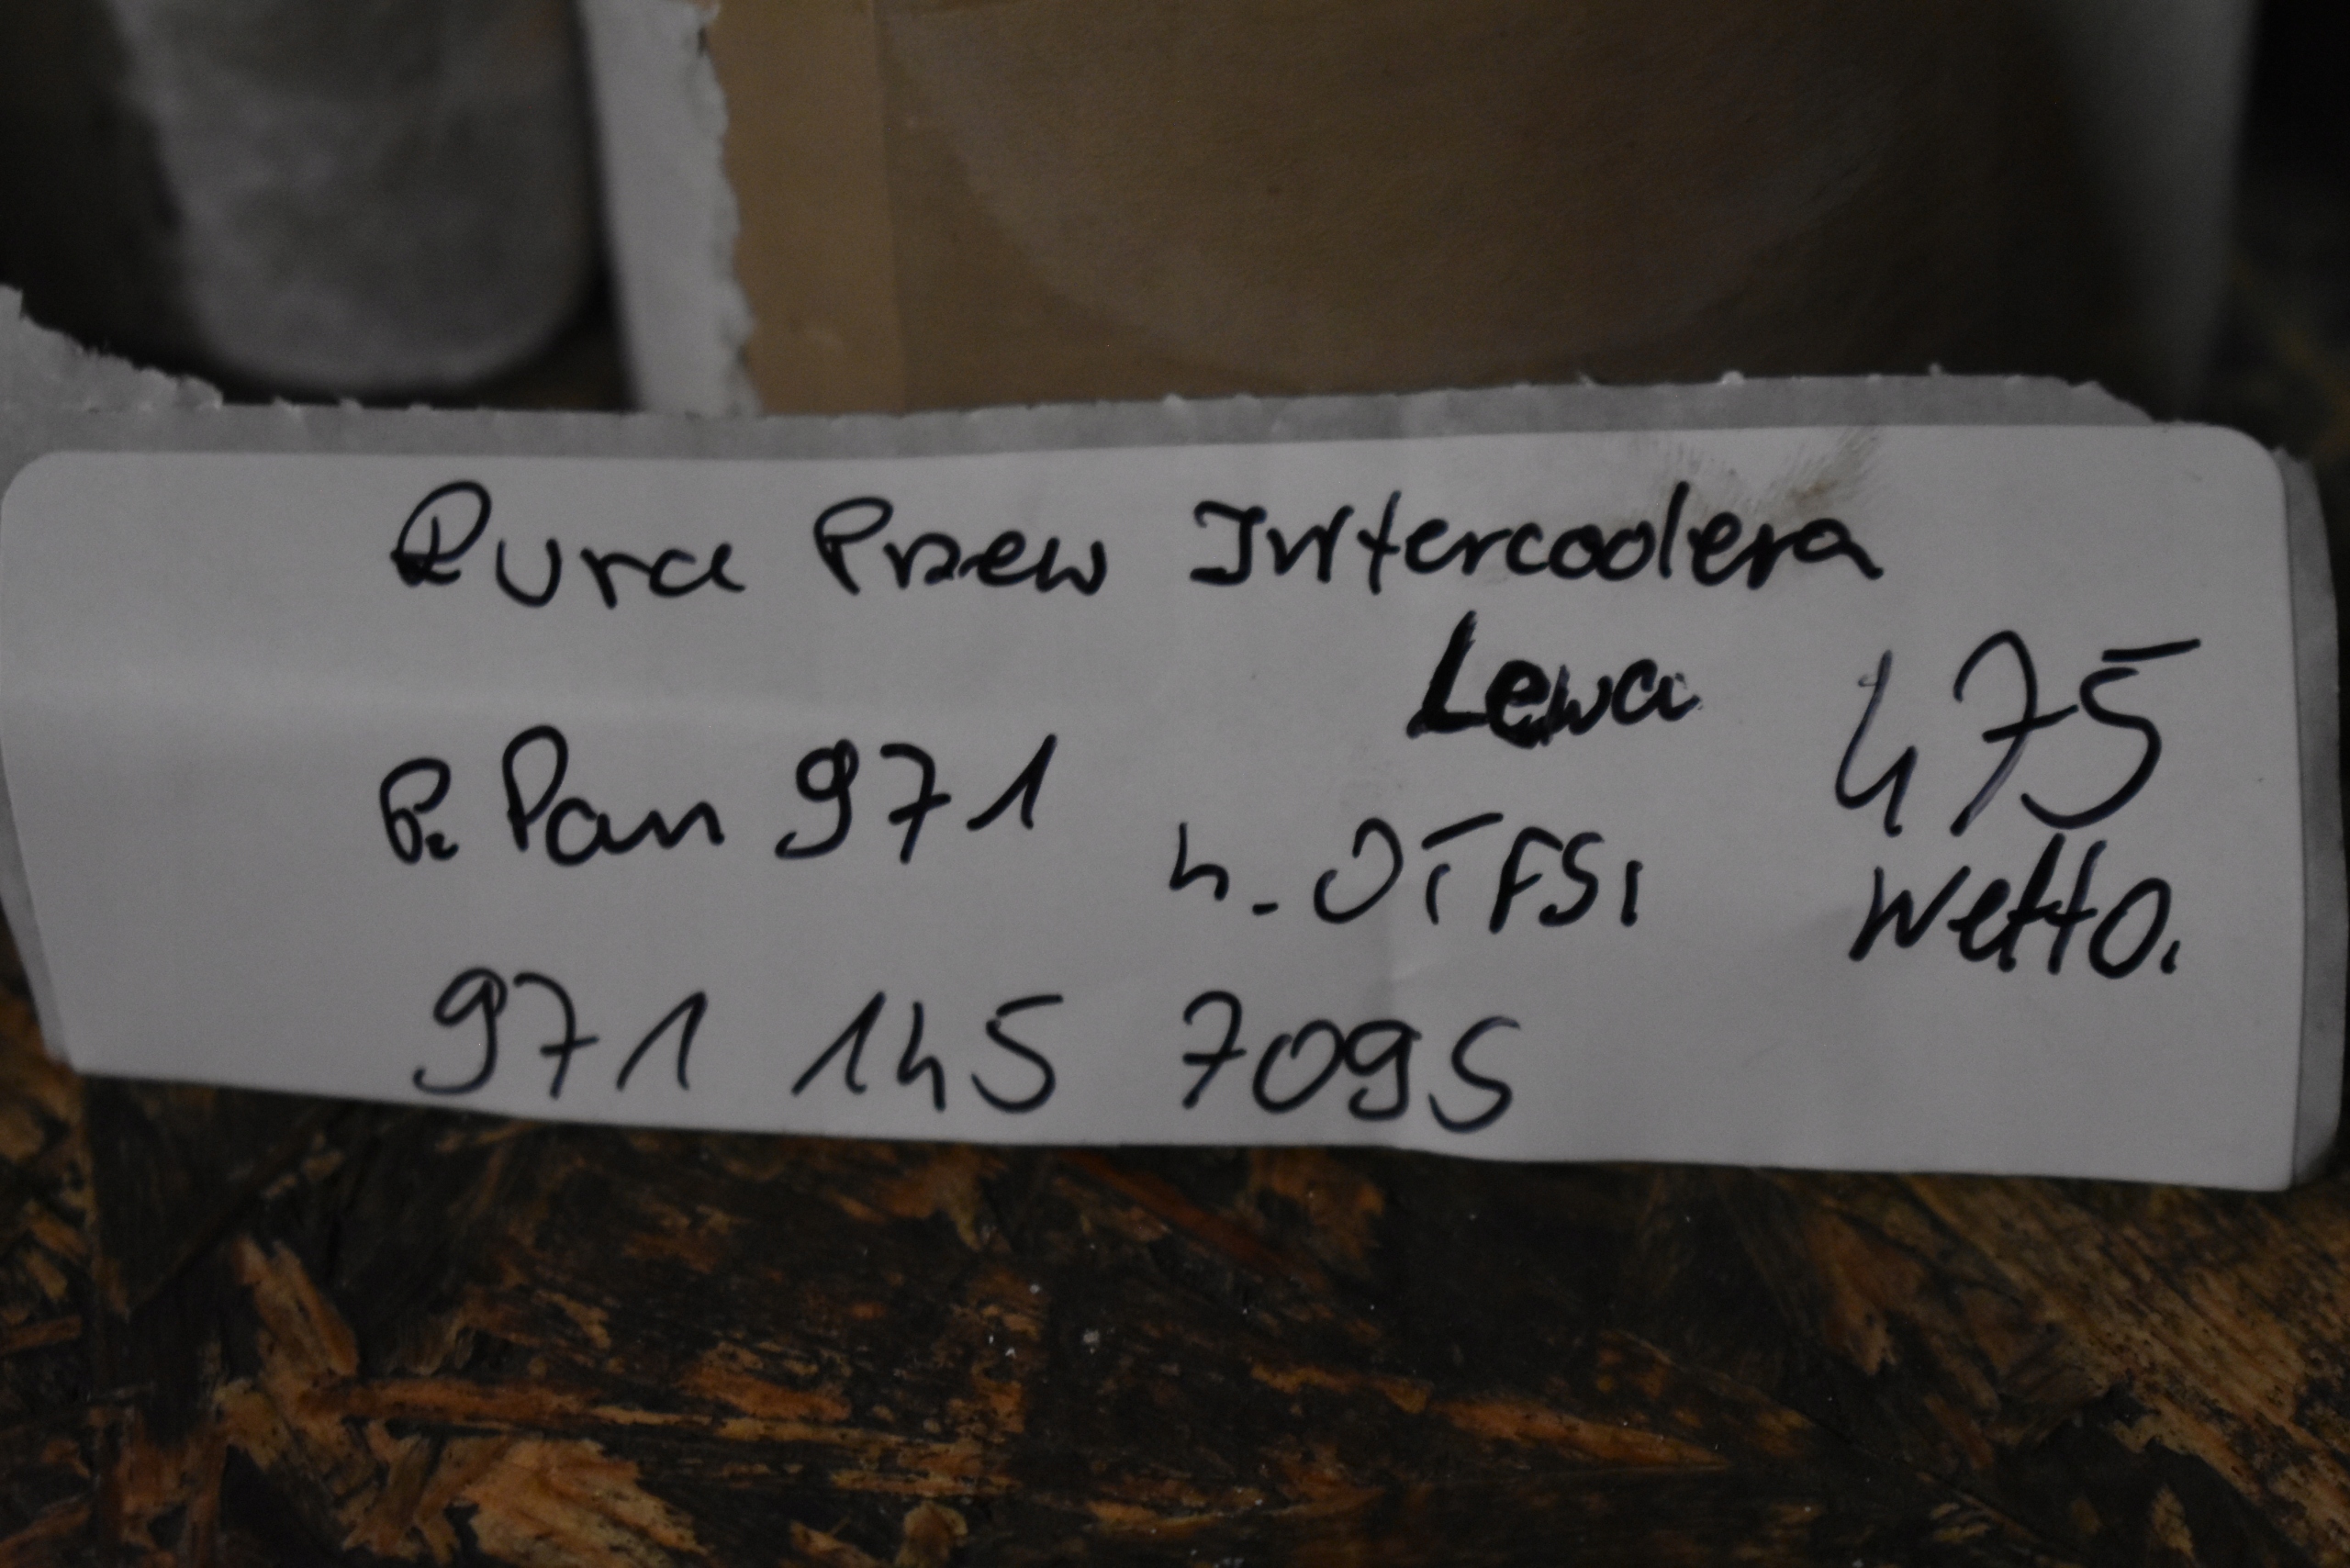 Rura Przew Intercoolera
Lewa
475
P. Pan 971
4.0TFSI
Netto.
971 145 709S